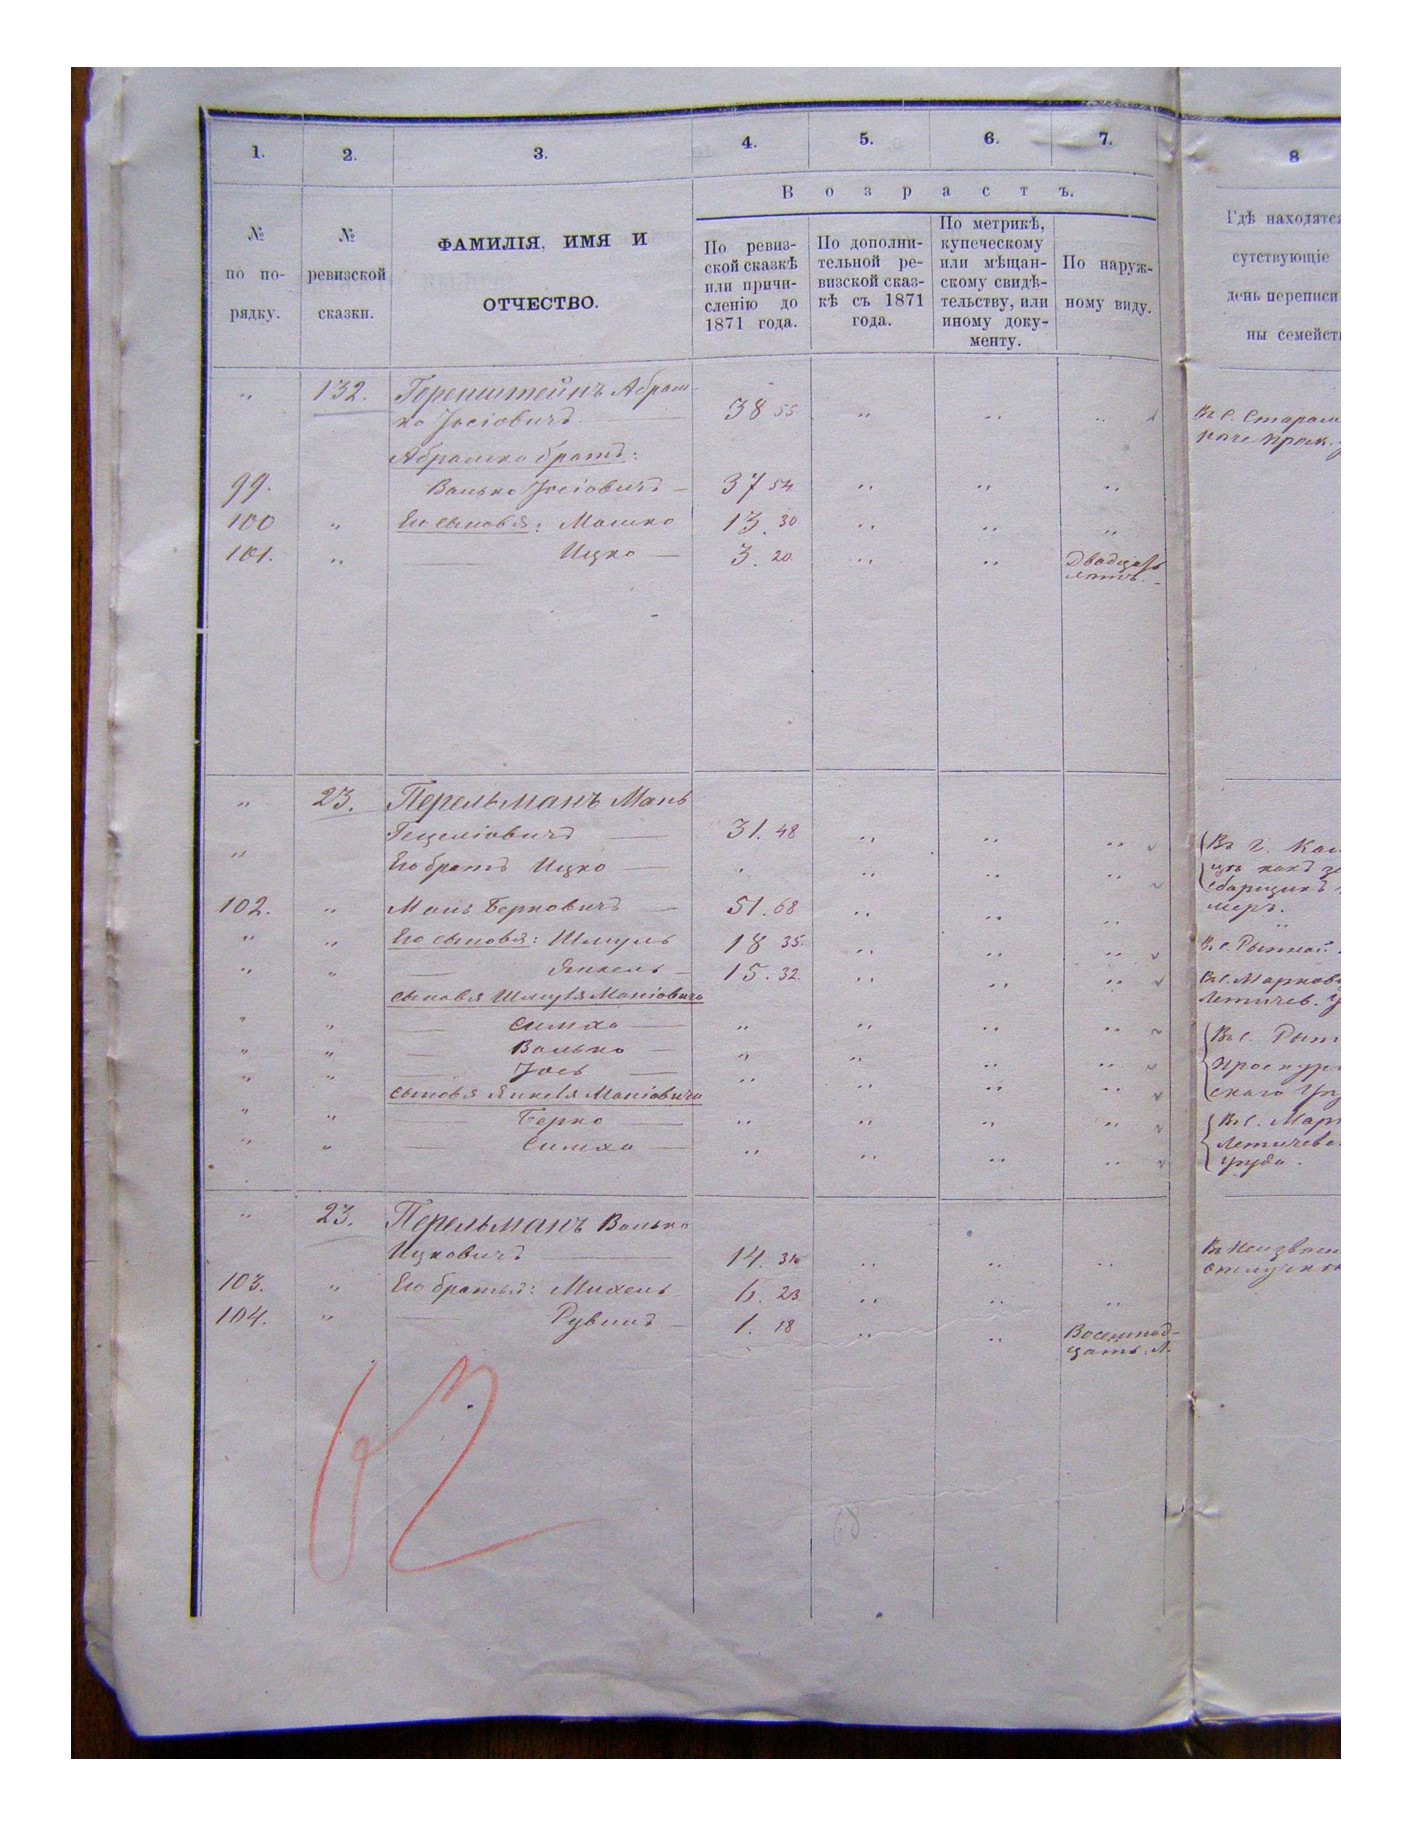 1. 2. 3. 4. 5. 6. 7. 8
Возрастъ.
№ по порядку.
№ ревизской сказки.
ФАМИЛІЯ, ИМЯ И
ОТЧЕСТВО.
По ревиз-
ской сказкѣ
или причи-
сленію до
1871 года.
По дополни-
тельной ре-
визской сказ-
кѣ съ 1871
года.
По метрикѣ,
купеческому
или мѣщан-
скому свидѣ-
тельству, или
иному доку-
менту.
По наруж-
ному виду.
Гдѣ находятся
сутствующіе
день переписи
ны семейст
„ 132. Горенштейнъ Абраш-
ко Іосіовичъ — 38 55 „ „ „ Въ с. Старом
Абрашка братъ:
99. Валько Іосіовичъ — 37 54 „ „ „
100 „ Его сыновья: Мошко 13. 30 „ „ „
101. „ — Ицко — 3. 20. „ „ Двадцать
лѣтъ. –
„ 23. Перельманъ Мань
Гецеліовичъ — 31. 48 „ „ „ Въ г. Кам
„ Его братъ Ицко — „ „ „ „
102. „ Мань Берковичъ — 51. 68 „ „ „ меръ.
„ „ Его сыновья: Шмуль 18 35. „ „ „
„ „ — Янкель – 15. 32. „ „ „ Въ с. Марков
сыновья Шмуля Маніовича Летичев. у
„ „ — Симха — „ „ „ „ Въ с.
„ „ — Валько — „ „ „ „ Проскуров
„ „ — Іось — „ „ „ „ скаго Уѣз
сыновья Янкеля Маніовича
„ „ — Берко — „ „ „ „ Въ с. Марк
„ „ — Симха — „ „ „ „ Летичевс
уѣзда.
„ 23. Перельманъ Валько
Ицковичъ — 14. „ „ „ Въ Неизвѣст
отлучкѣ
103. „ Его братья: Михель 6. 23 „ „ „
104. „ — Рувинъ – 1. 18 „ „ Восемнад-
цать. л.
62